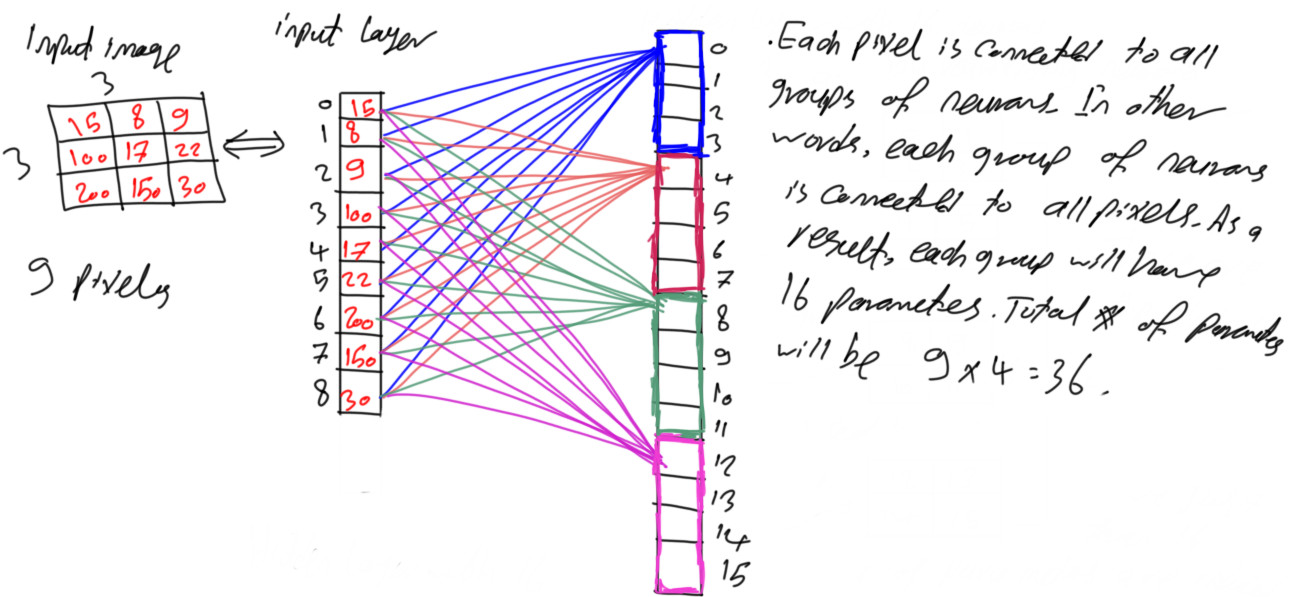 Input image
3
3
15 8 9
100 17 22
200 150 30
9 pixels
input Layer
0 15
1 8
2 9
3 100
4 17
5 22
6 200
7 150
8 30
0
1
2
3
4
5
6
7
8
9
10
11
12
13
14
15
. Each pixel is connected to all
groups of neurons. In other
words, each group of neurons
is connected to all pixels. As a
result, each group will have
16 parameters. Total # of parameters
will be 9 x 4 = 36.